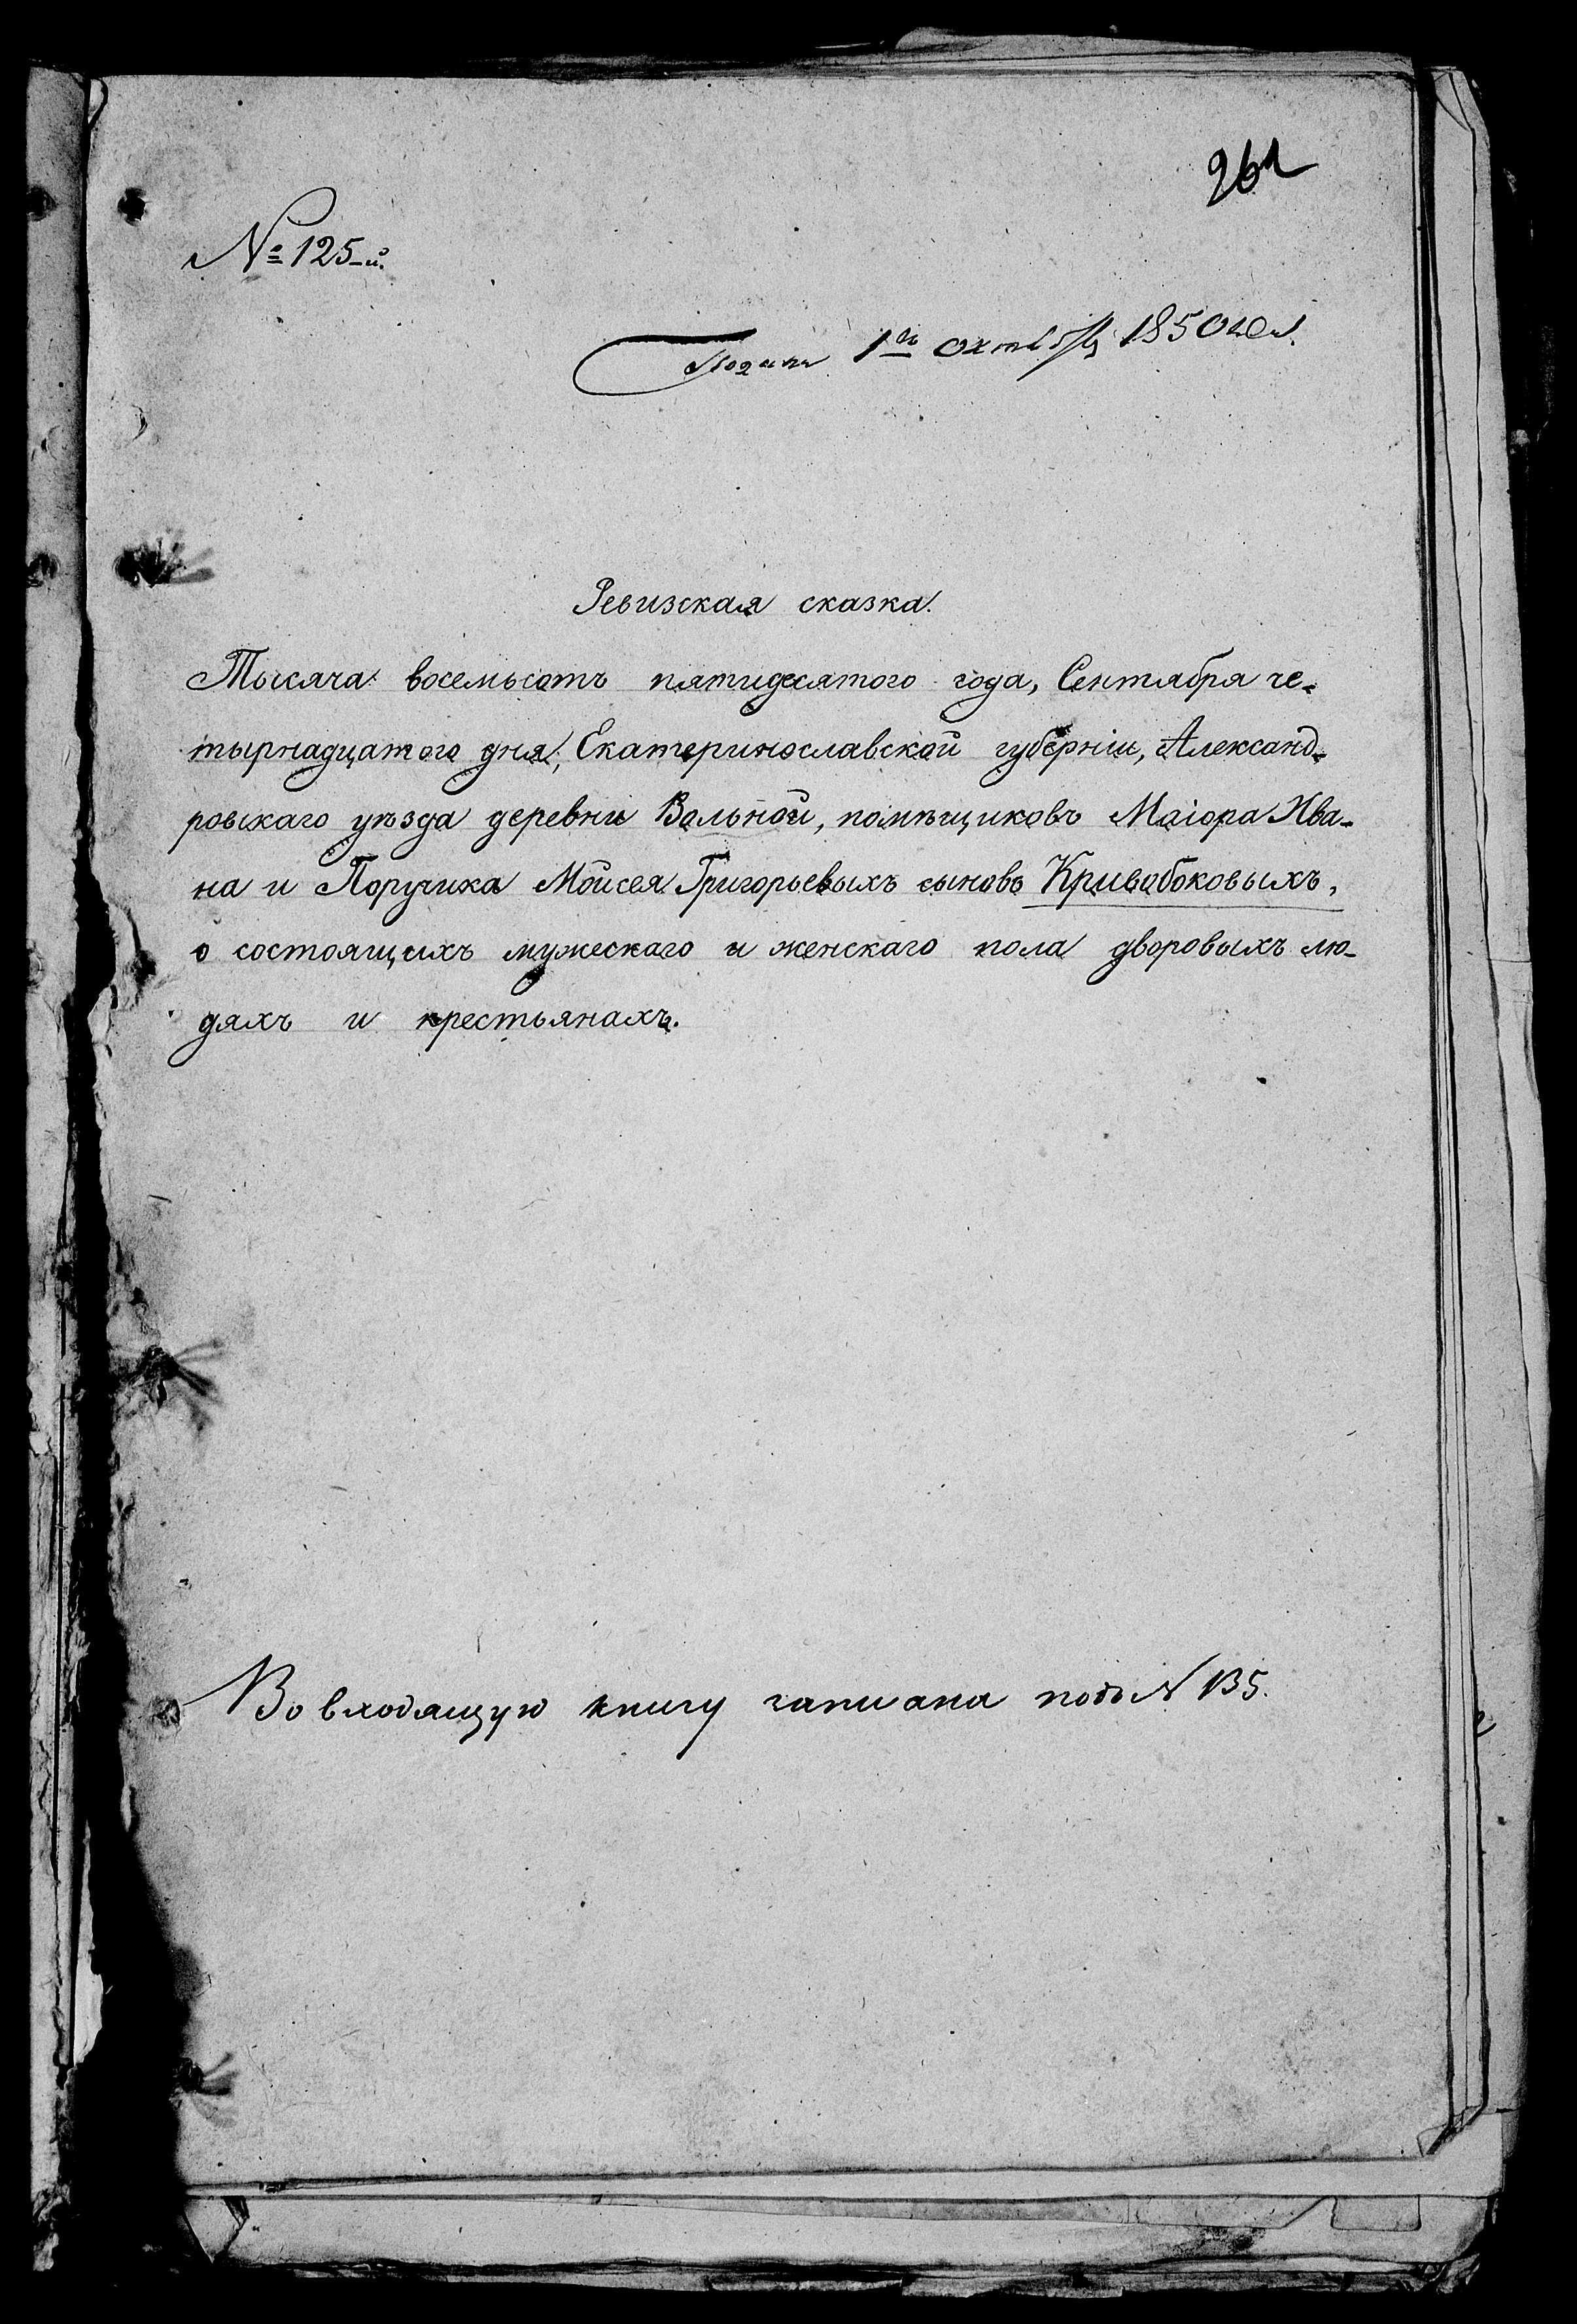 261
№ 125-й.
Подана 1го октября 1850 года.
Ревизская сказка.
Тысяча восемьсотъ пятидесятого года, Сентября че-
тырнадцатого дня, Екатеринославской губерніи, Александ-
ровскаго уѣзда деревни Вольной, помѣщиковъ Маіора Ива-
на и Поручика Мойсея Григорьевыхъ сыновъ Кривобоковыхъ,
о состоящихъ мужескаго и женскаго пола дворовыхъ лю-
дяхъ и крестьянахъ.
Во входящую книгу записана подъ N 135.